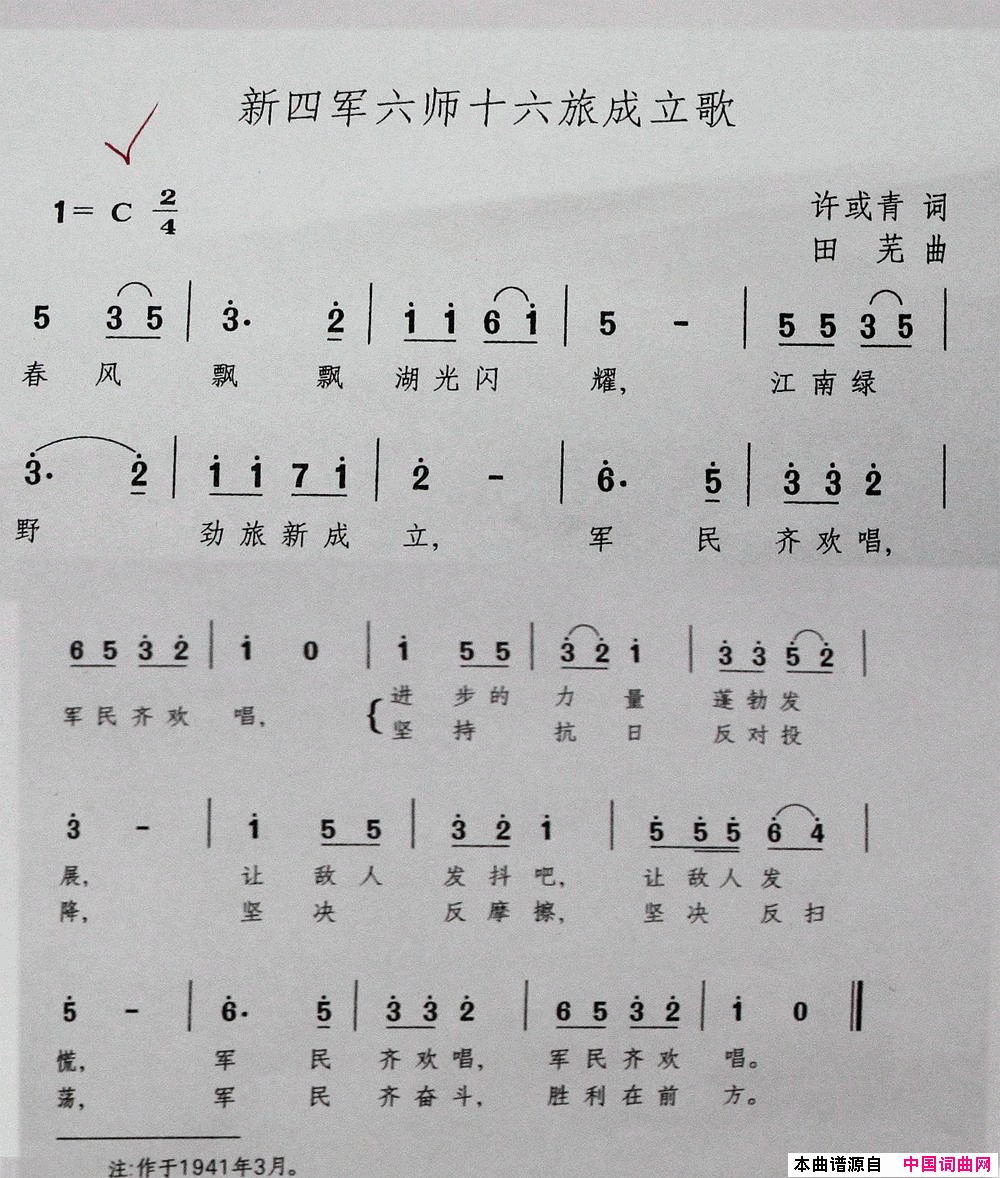 新四军六师十六旅成立歌
1= C 2/4
许或青 词
田 芜 曲
5 3 5 | 3̇· 2̇ | 1̇ 1̇ 6 1̇ | 5 - | 5 5 3 5 |
春 风 飘 飘 湖 光 闪 耀, 江 南 绿
3̇· 2̇ | 1̇ 1̇ 7 1̇ | 2̇ - | 6̇· 5̇ | 3̇ 3̇ 2̇ |
野 劲 旅 新 成 立, 军 民 齐 欢 唱,
6 5 3̇ 2̇ | 1̇ 0 | 1̇ 5 5 | 3̇ 2̇ 1̇ | 3̇ 3̇ 5̇ 2̇ |
进 步 的 力 量 蓬 勃 发
军 民 齐 欢 唱, {
坚 持 抗 日 反 对 投
3̇ - | 1̇ 5 5 | 3̇ 2̇ 1̇ | 5̇ 5̇ 5̇ 6̇ 4̇ |
展, 让 敌 人 发 抖 吧, 让 敌 人 发
降, 坚 决 反 摩 擦, 坚 决 反 扫
5̇ - | 6̇· 5̇ | 3̇ 3̇ 2̇ | 6 5 3̇ 2̇ | 1̇ 0 ‖
慌, 军 民 齐 欢 唱, 军 民 齐 欢 唱。
荡, 军 民 齐 奋 斗, 胜 利 在 前 方。
注:作于1941年3月。
本曲谱源自 中国词曲网